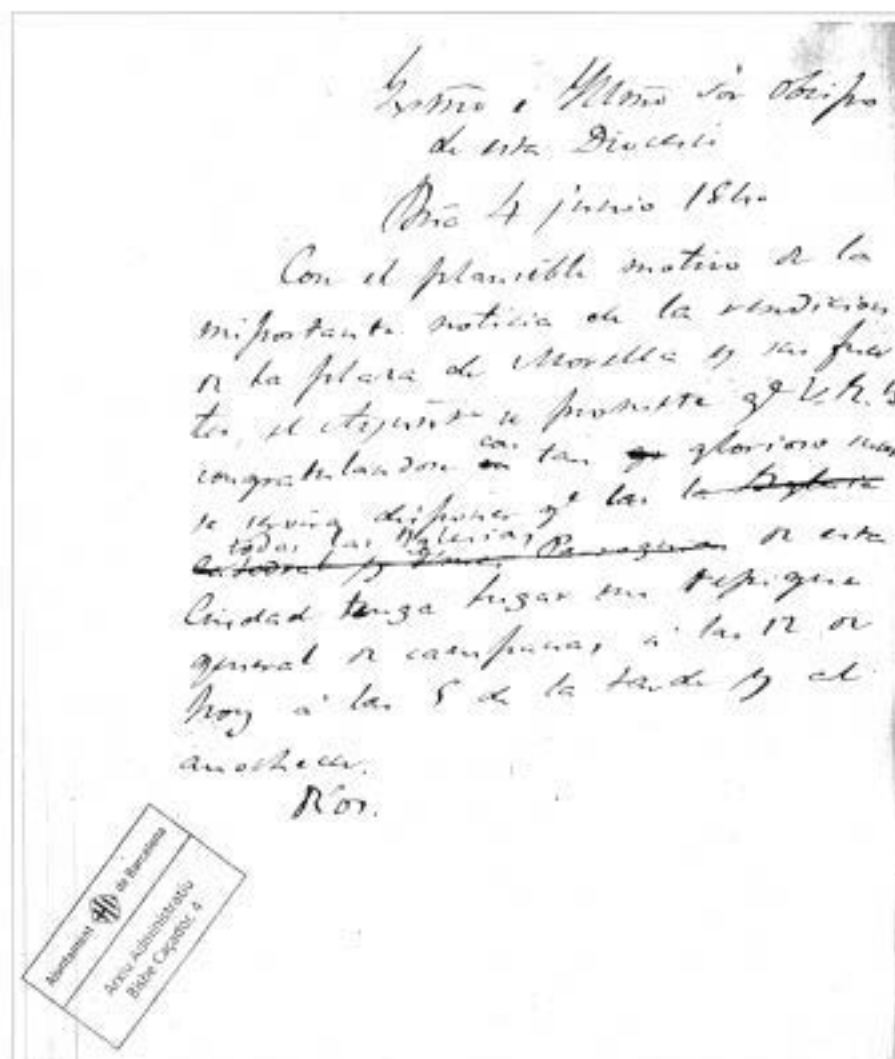 Exmo e Illmo Sor Obispo
de esta Diocesis
Bna 4 junio 1840
Con el plausible motivo de la
importante noticia de la rendicion
de la plaza de Morella y sus fuer
tes, el Ayunt se promete qe V.
congratulandose con tan glorioso
se servirá disponer qe las la Yglesia
todas las Yglesias
Catedral y Parroquias de esta
Ciudad tenga lugar un repique
general de campanas á las 12 de
hoy á las 5 de la tarde y al
anochecer.
Ajuntament de Barcelona
Arxiu Administratiu
Bisbe Caçador, 4